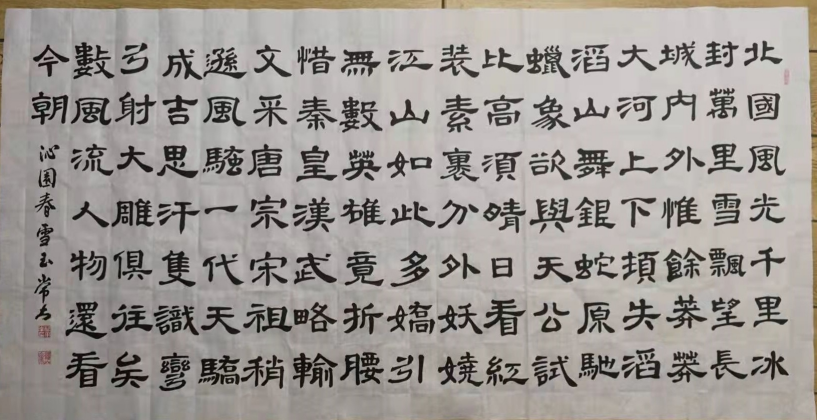 北國風光千里冰
封萬里雪飄望長
城内外惟餘莽莽
大河上下頓失滔
滔山舞銀蛇原馳
蠟象欲與天公試
比高須晴日看紅
装素裹分外妖嬈
江山如此多嬌引
無數英雄竟折腰
惜秦皇漢武略輸
文采唐宗宋祖稍
遜風騷一代天驕
成吉思汗隻識彎
弓射大雕俱往矣
數風流人物還看
今朝
沁園春雪玉常书